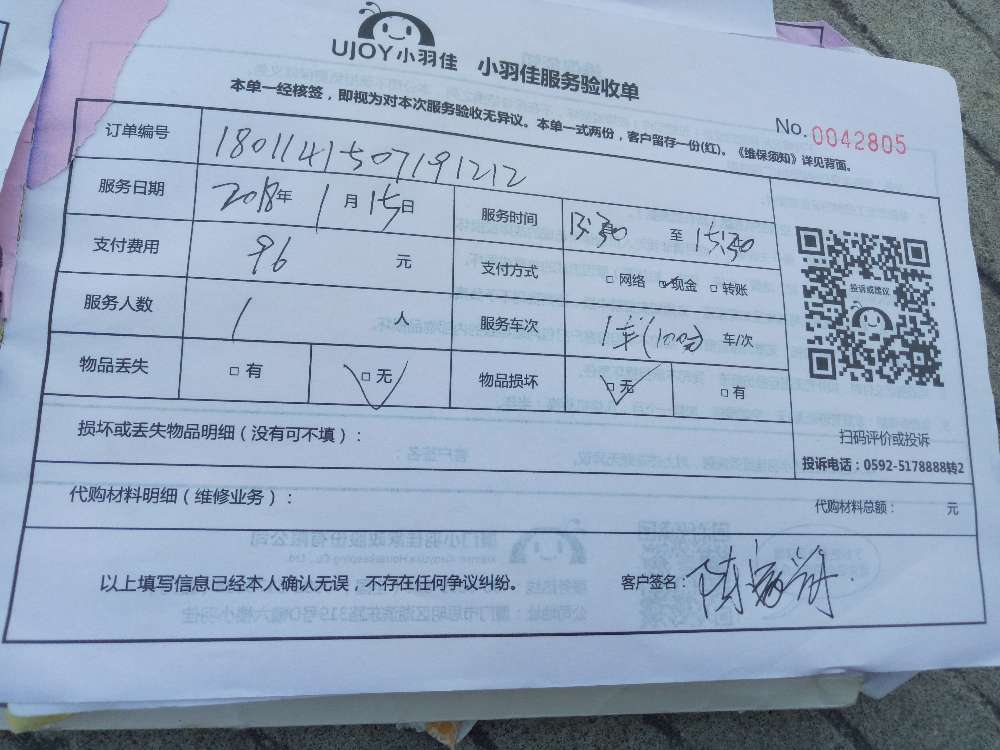 UJOY小羽佳 小羽佳服务验收单
本单一经核签，即视为对本次服务验收无异议。本单一式两份，客户留存一份(红)。《维保须知》详见背面。
No.0042805
订单编号 1801141507191212
服务日期 2018年 1月15日 服务时间 13:30 至 15:30
支付费用 96 元 支付方式 □网络 □现金 □转账
服务人数 1 人 服务车次 1车 车/次
物品丢失 □有 □无 物品损坏 □无 □有
投诉或建议
扫码评价或投诉
投诉电话：0592-5178888转2
损坏或丢失物品明细（没有可不填）：
代购材料明细（维修业务）： 代购材料总额： 元
以上填写信息已经本人确认无误，不存在任何争议纠纷。 客户签名：陈